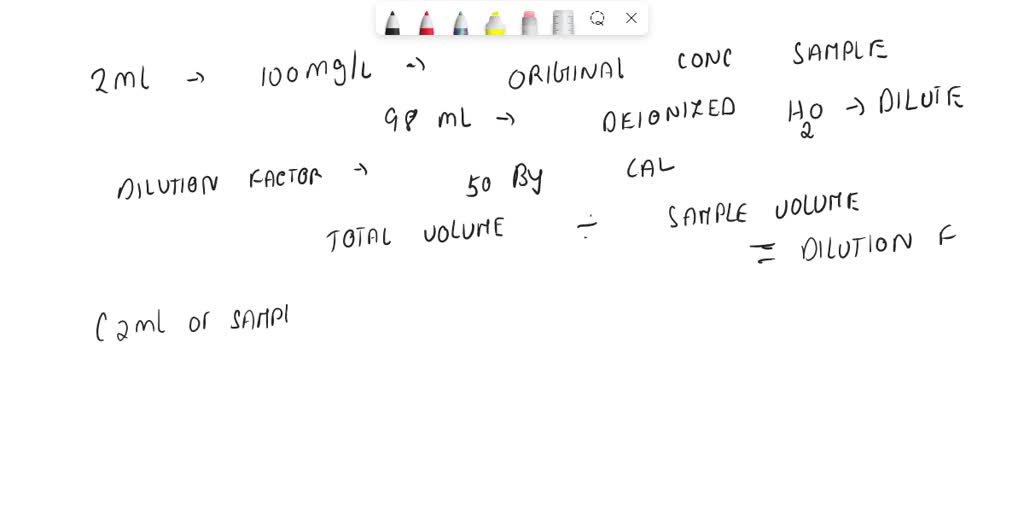 2ml → 100mg/L → ORIGINAL CONC SAMPLE
98 mL → DEIONIZED H2O → DILUTE
DILUTION FACTOR → 50 By CAL
TOTAL VOLUME ÷ SAMPLE VOLUME
= DILUTION F
(2ml of SAMPL